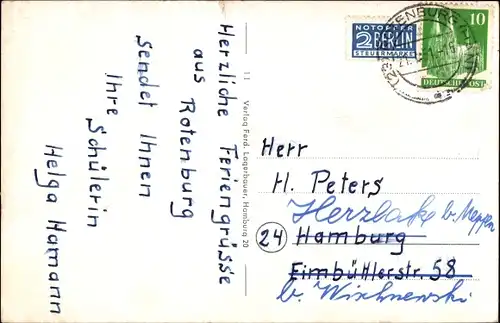 Herzliche Feriengrüsse
aus Rotenburg
sendet Ihnen
Ihre Schülerin
Helga Hamann
11 Verlag Ferd. Lagerbauer, Hamburg 20
NOTOPFER
2 BERLIN
STEUERMARKE
10
DEUTSCHE POST
Herr
H. Peters
Herzlake b. Meppen
24 Hamburg
Eimbüttlerstr. 58
b. Wischnewski